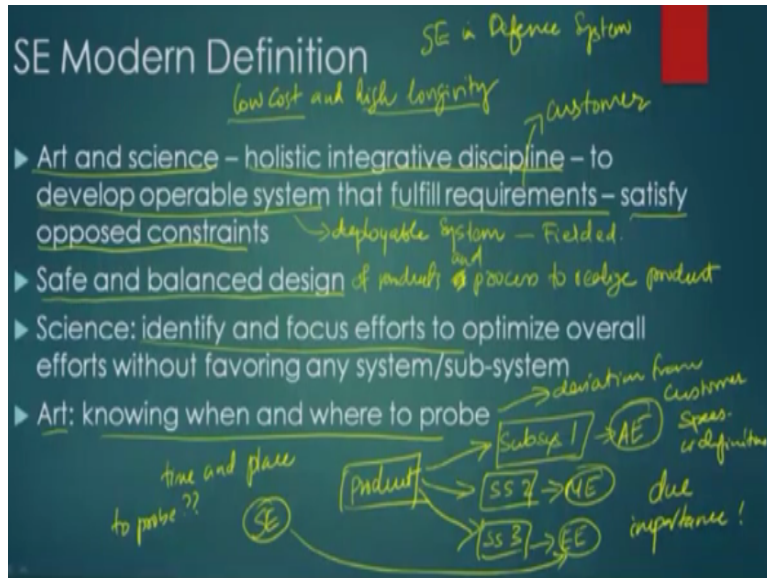 SE in Defence System
SE Modern Definition
low cost and high longivity
customer
Art and science – holistic integrative discipline – to
develop operable system that fulfill requirements – satisfy
opposed constraints
deployable System – Fielded.
Safe and balanced design of products and process to realize product
Science: identify and focus efforts to optimize overall
efforts without favoring any system/sub-system
Art: knowing when and where to probe
deviation from
customer
specs.
time and place
to probe??
SE
Product
Subsys 1
AE
SS 2
ME
SS 3
EE
due
importance!